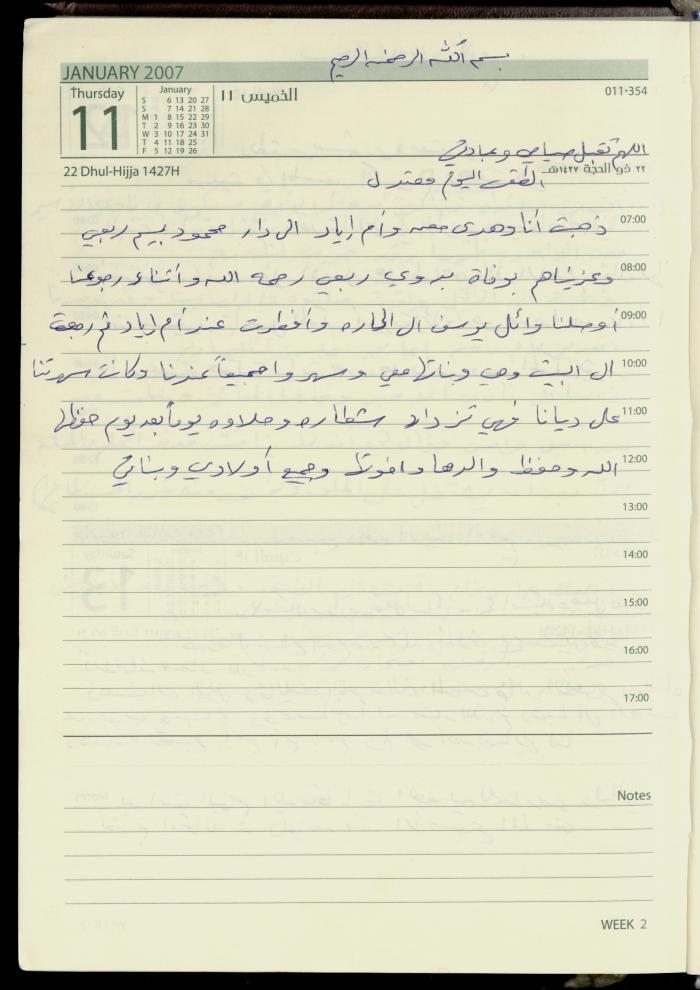 بسم الله الرحمن الرحيم
JANUARY 2007
Thursday
11
January
S 6 13 20 27
S 7 14 21 28
M 1 8 15 22 29
T 2 9 16 23 30
W 3 10 17 24 31
T 4 11 18 25
F 5 12 19 26
الخميس ١١
011-354
اللهم تقبل صيامي وعبادتي
22 Dhul-Hijja 1427H
٢٢ ذو الحجة ١٤٢٧هـ
الطقس اليوم معتدل
07:00
ذهبت أنا وهدى معه وأم إياد الى دار محمود بسيم ربعي
08:00
وعزيناهم بوفاة بدوي ربعي رحمه الله وأثناء رجوعنا
09:00
أوصلنا وائل يوسف الى الحاره وأفطرت عند أم إياد ثم رجعت
10:00
الى البيت وهي وبناتها معي وسهروا جميعاً عندنا وكانت سهرتنا
11:00
على ديانا فهي تزداد شطاره وحلاوه يوماً بعد يوم حفظها
12:00
الله وحفظ والدها واخوتها وجميع أولادي وبناتي
13:00
14:00
15:00
16:00
17:00
Notes
WEEK 2